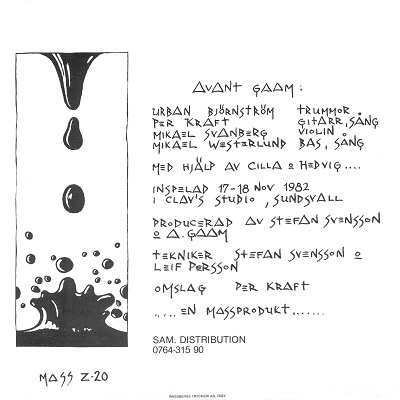 AVANT GAAM:
URBAN BJÖRNSTRÖM TRUMMOR
PER KRAFT GITARR, SÅNG
MIKAEL SVANBERG VIOLIN
MIKAEL WESTERLUND BAS, SÅNG
MED HJÄLP AV CILLA O HEDVIG....
INSPELAD 17-18 NOV 1982
I CLAV'S STUDIO, SUNDSVALL
PRODUCERAD AV STEFAN SVENSSON
O A. GAAM
TEKNIKER STEFAN SVENSSON O
LEIF PERSSON
OMSLAG PER KRAFT
....EN MASSPRODUKT......
SAM. DISTRIBUTION
0764-315 90
MASS Z-20